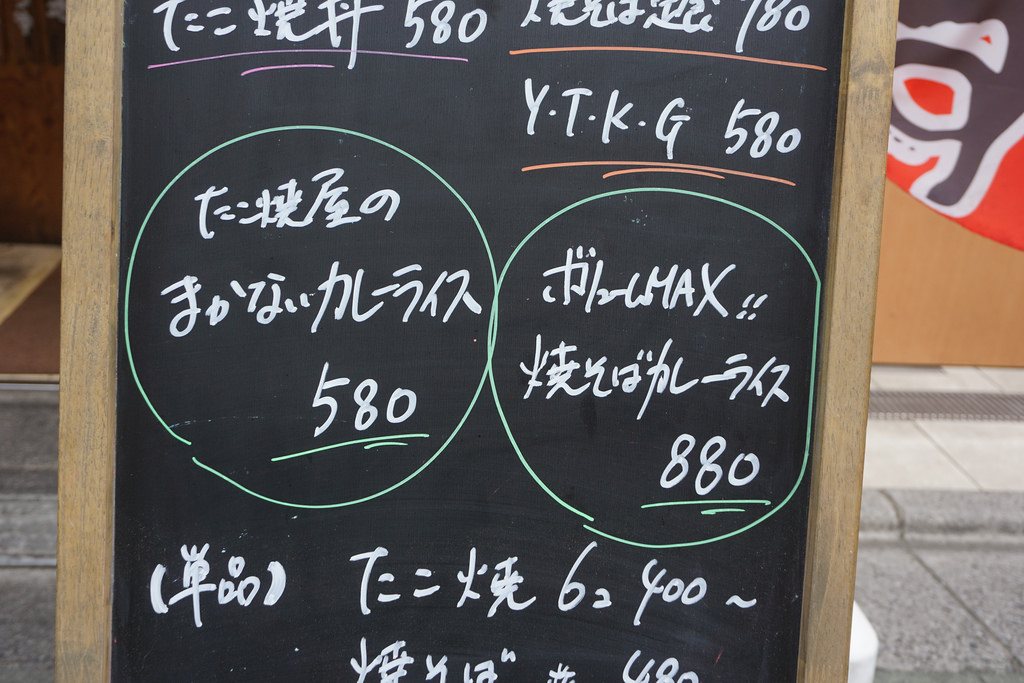 たこ焼丼 580
焼そば定食 780
Y・T・K・G 580
たこ焼屋の
まかないカレーライス
580
ボリュームMAX!!
焼そばカレーライス
880
(単品) たこ焼 6コ 400～
焼そば 並 480